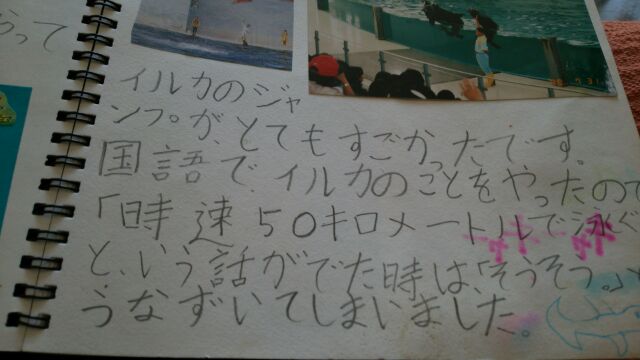 らって
イルカのジャ
ンプが、とてもすごかったです。
国語で、イルカのことをやったので
「時速50キロメートルで泳ぐ
と、いう話がでた時は、「そうそう。」
うなずいてしまいました。